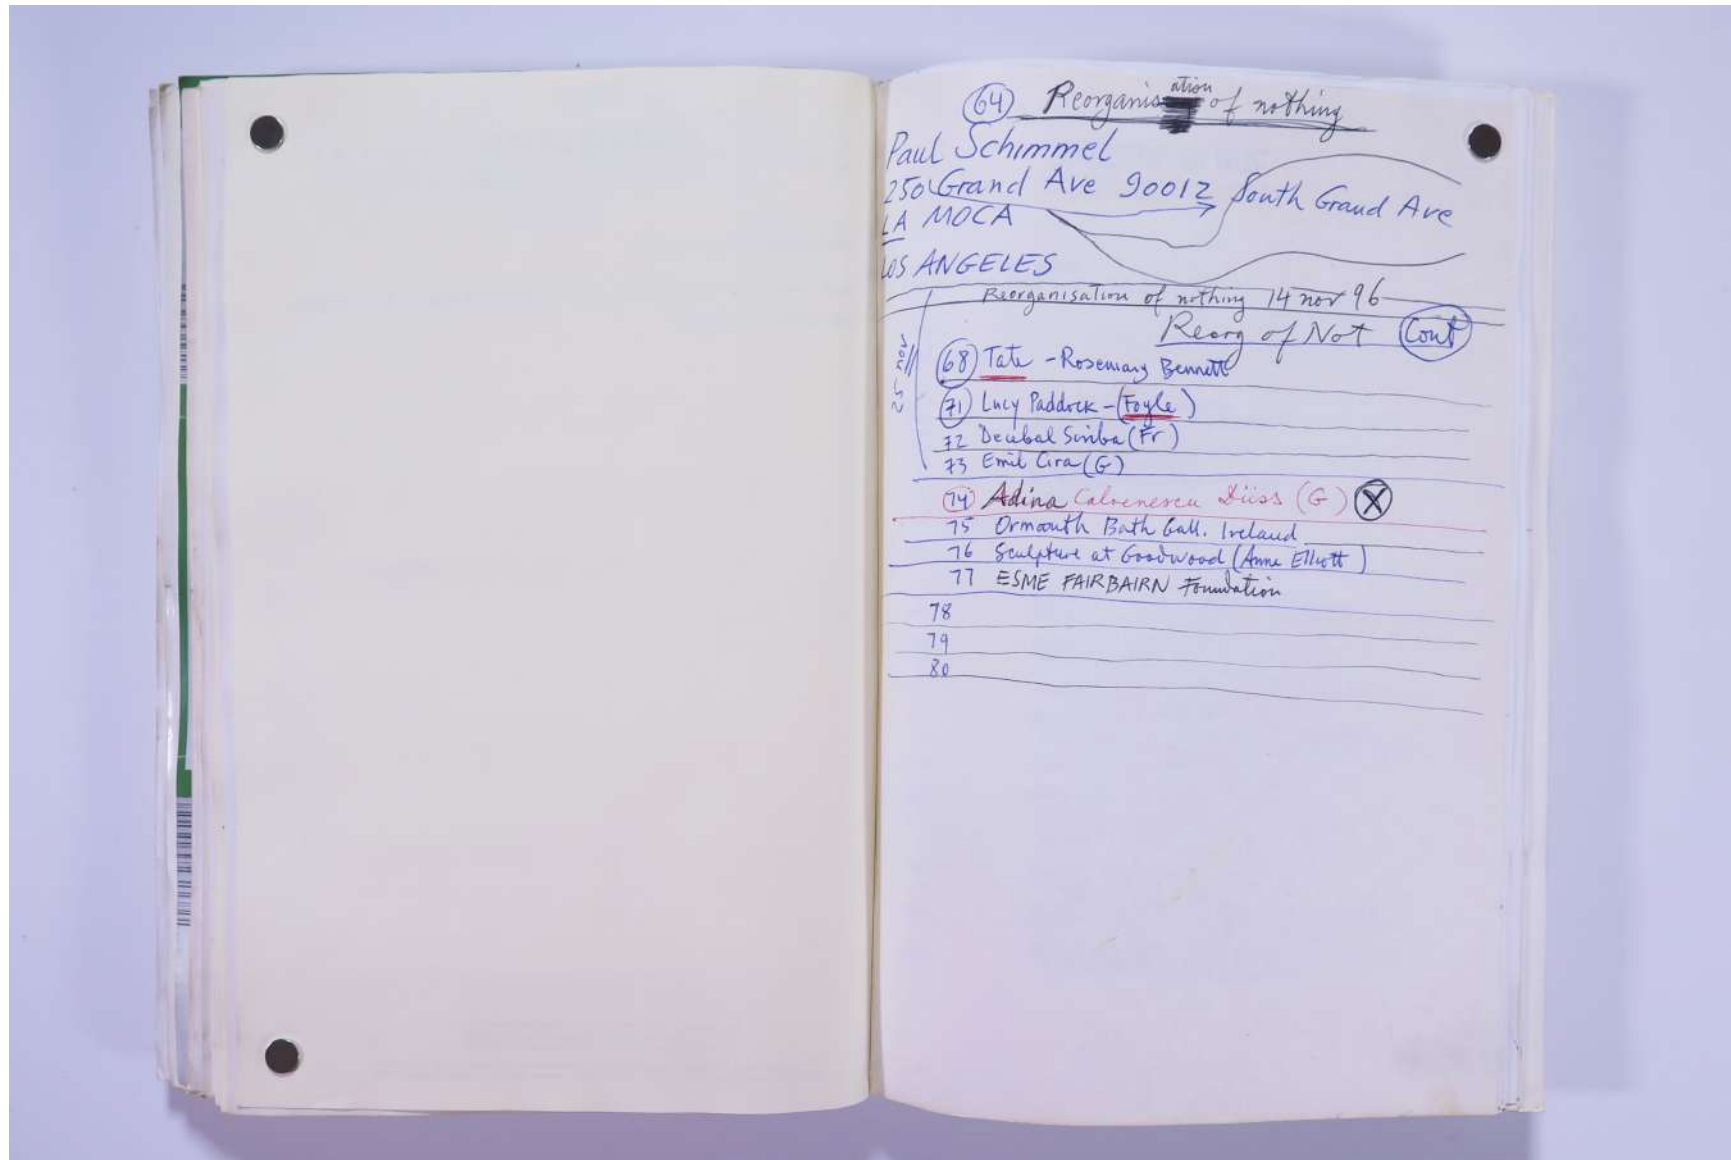 64 Reorganisation of nothing
Paul Schimmel
250 Grand Ave 90012 South Grand Ave
LA MOCA
LOS ANGELES
Reorganisation of nothing 14 nov 96
Reorg of Not Cont
25 nov
68 Tate - Rosemary Bennett
71 Lucy Paddock - (Foyle)
72 Decebal Scriba (Fr)
73 Emil Cira (G)
74 Adina (G) X
75 Ormouth Bath Gall. Ireland
76 Sculpture at Goodwood (Anne Elliott)
77 ESME FAIRBAIRN Foundation
78
79
80